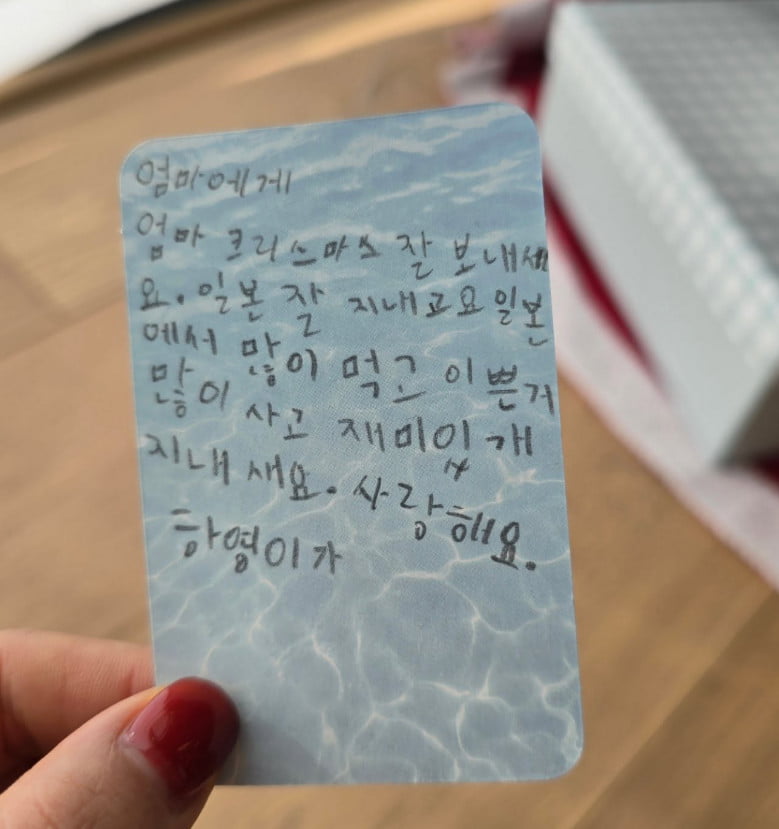 엄마에게
엄마 크리스마스 잘 보내세
요. 일본 잘 지내고요일본
에서 많이 먹고 이쁜거
많이 사고 재미있개
지내새요. 사랑해요.
하영이가